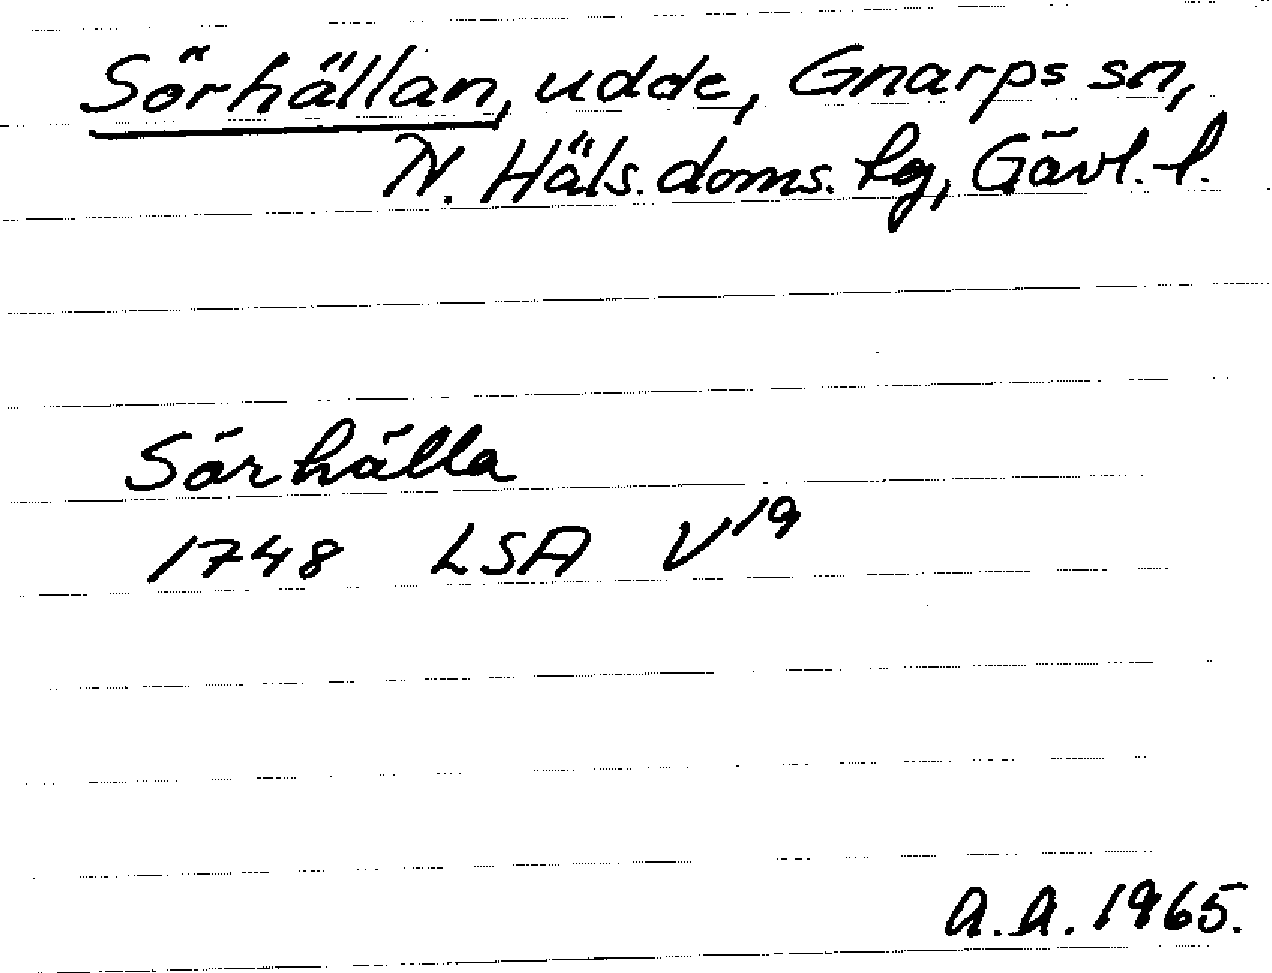 Sörhällan, udde, Gnarps sn,
N. Häls. doms. hg, Gävl.-l.
Sörhälla
1748 LSA V¹⁹
A.A. 1965.